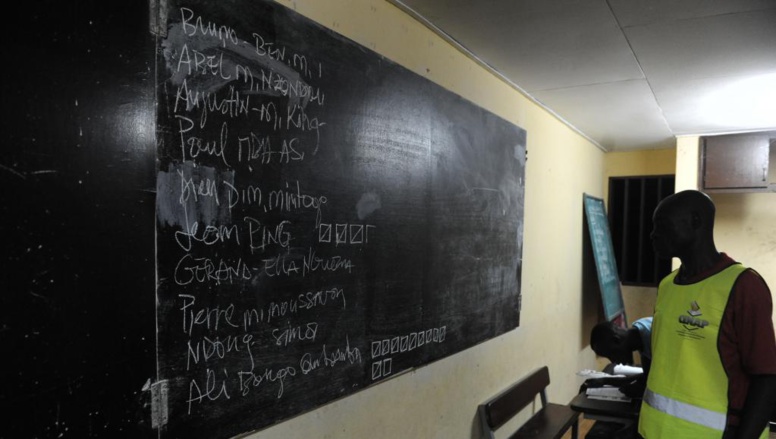 Bruno-BEN.M.I
ABEL M.
Augustin-M.King-
Paul MBA AS
Dim.mintogo
Jean PING
GERARD-Ella NGUEMA
Pierre mimoussavon
NDong sima
Ali Bongo